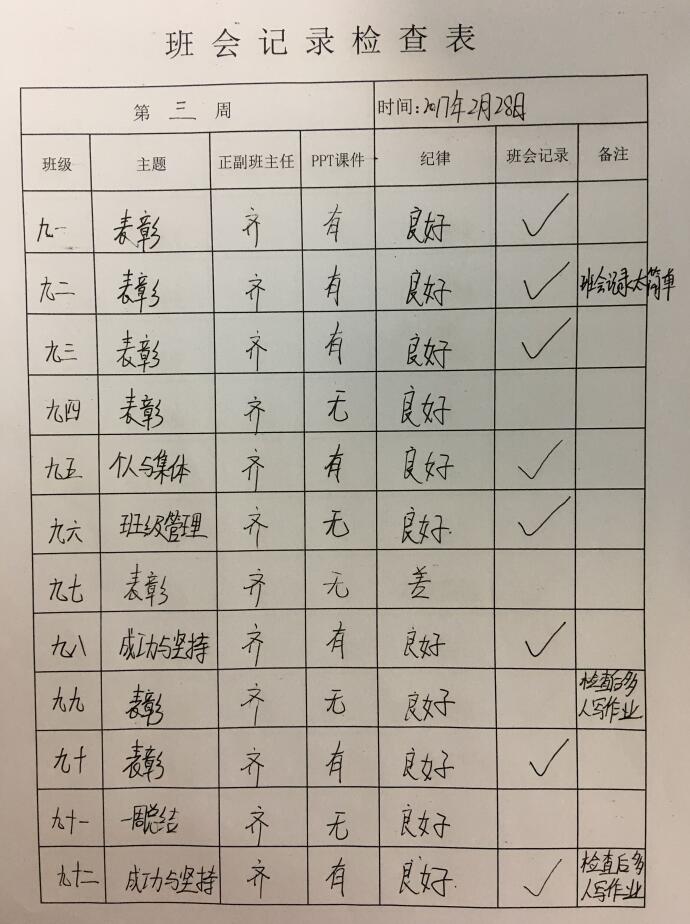 班会记录检查表
第 三 周 时间:2017年2月28日
班级 主题 正副班主任 PPT课件 纪律 班会记录 备注
九一 表彰 齐 有 良好 ✓
九二 表彰 齐 有 良好 ✓ 班会记录太简单
九三 表彰 齐 有 良好 ✓
九四 表彰 齐 无 良好
九五 个人与集体 齐 有 良好 ✓
九六 班级管理 齐 无 良好. ✓
九七 表彰 齐 无 差
九八 成功与坚持 齐 有 良好 ✓
九九 表彰 齐 无 良好 检查后多
人写作业
九十 表彰 齐 有 良好 ✓
九十一 一周总结 齐 无 良好
九十二 成功与坚持 齐 有 良好. ✓ 检查后多
人写作业